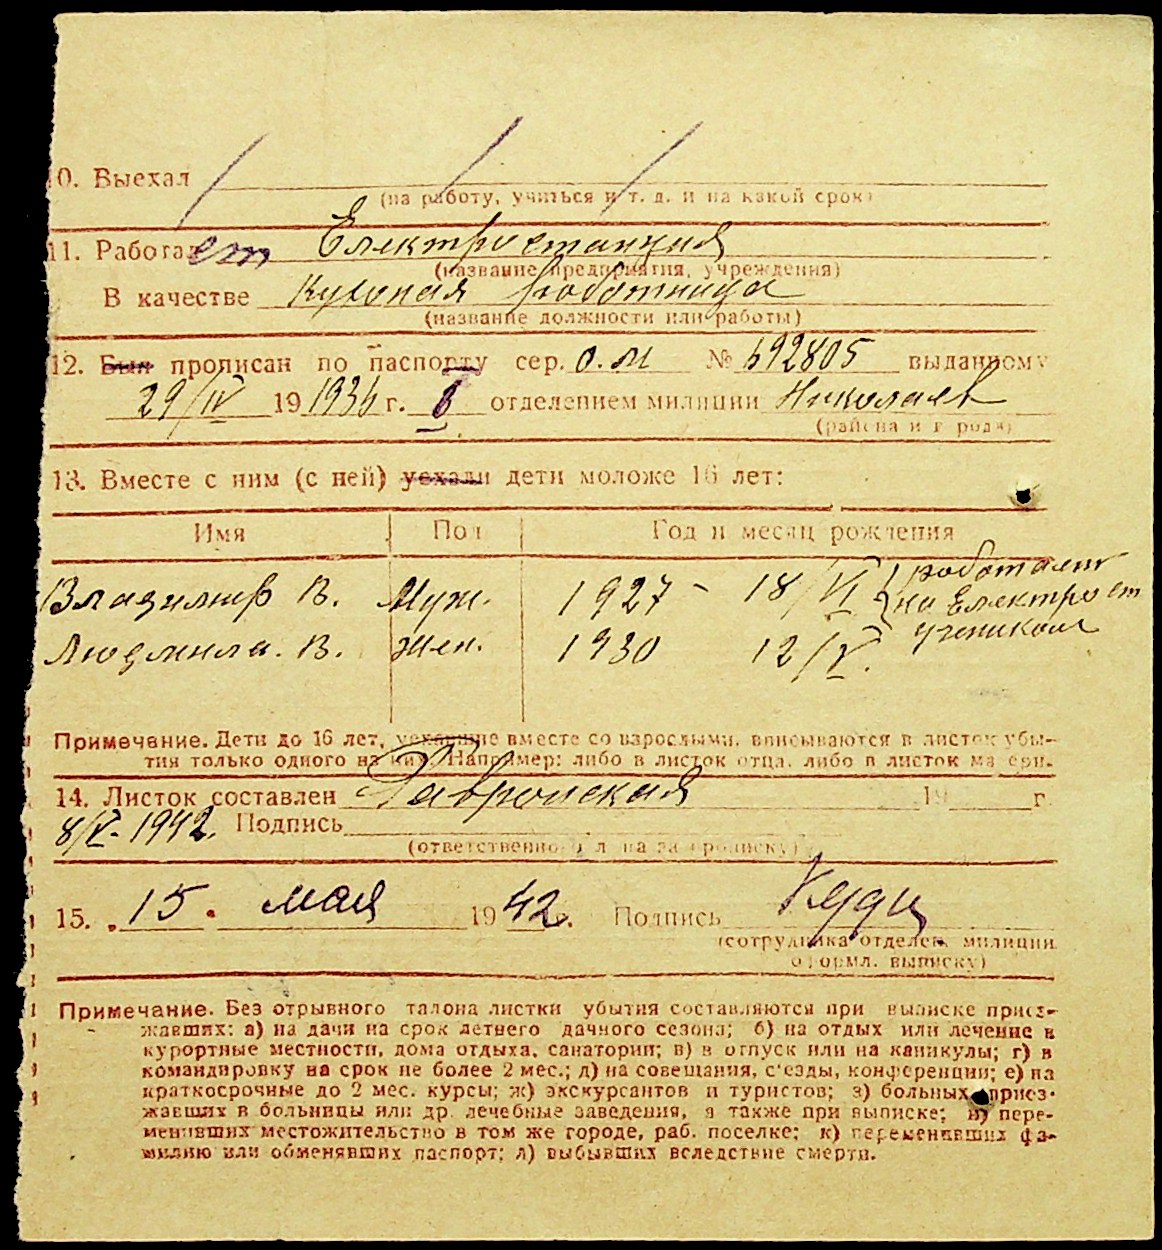 10. Выехал
(на работу, учиться и т. д. и на какой срок)
11. Работает Електростанция
(название предприятия, учреждения)
В качестве Кухоная работница
(название должности или работы)
12. Был прописан по паспорту сер. О.М № 592805 выданному
29/IV 19 1936 г. 3 отделением милиции Николаев
(района и города)
13. Вместе с ним (с ней) уехали дети моложе 16 лет:
Имя Пол Год и месяц рождения
Владимир В. Муж. 1927 - 18/VI { работает
на Електрост
учеником
Людмила. В. Жен. 1930 12/V.
Примечание. Дети до 16 лет, уехавшие вместе со взрослыми, вписываются в листок убы-
тия только одного из них. Например: либо в листок отца, либо в листок матери.
14. Листок составлен Гавронская 19 г.
8/V-1942. Подпись
(ответственного лица за прописку)
15. 15. мая 1942. Подпись
(сотрудника отделен. милиции
оформл. выписку)
Примечание. Без отрывного талона листки убытия составляются при выписке приез-
жавших: а) на дачи на срок летнего дачного сезона; б) на отдых или лечение в
курортные местности, дома отдыха, санатории; в) в отпуск или на каникулы; г) в
командировку на срок не более 2 мес.; д) на совещания, с'езды, конференции; е) на
краткосрочные до 2 мес. курсы; ж) экскурсантов и туристов; з) больных, приез-
жавших в больницы или др. лечебные заведения, а также при выписке; и) пере-
менивших местожительство в том же городе, раб. поселке; к) переменивших фа-
милию или обменявших паспорт; л) выбывших вследствие смерти.